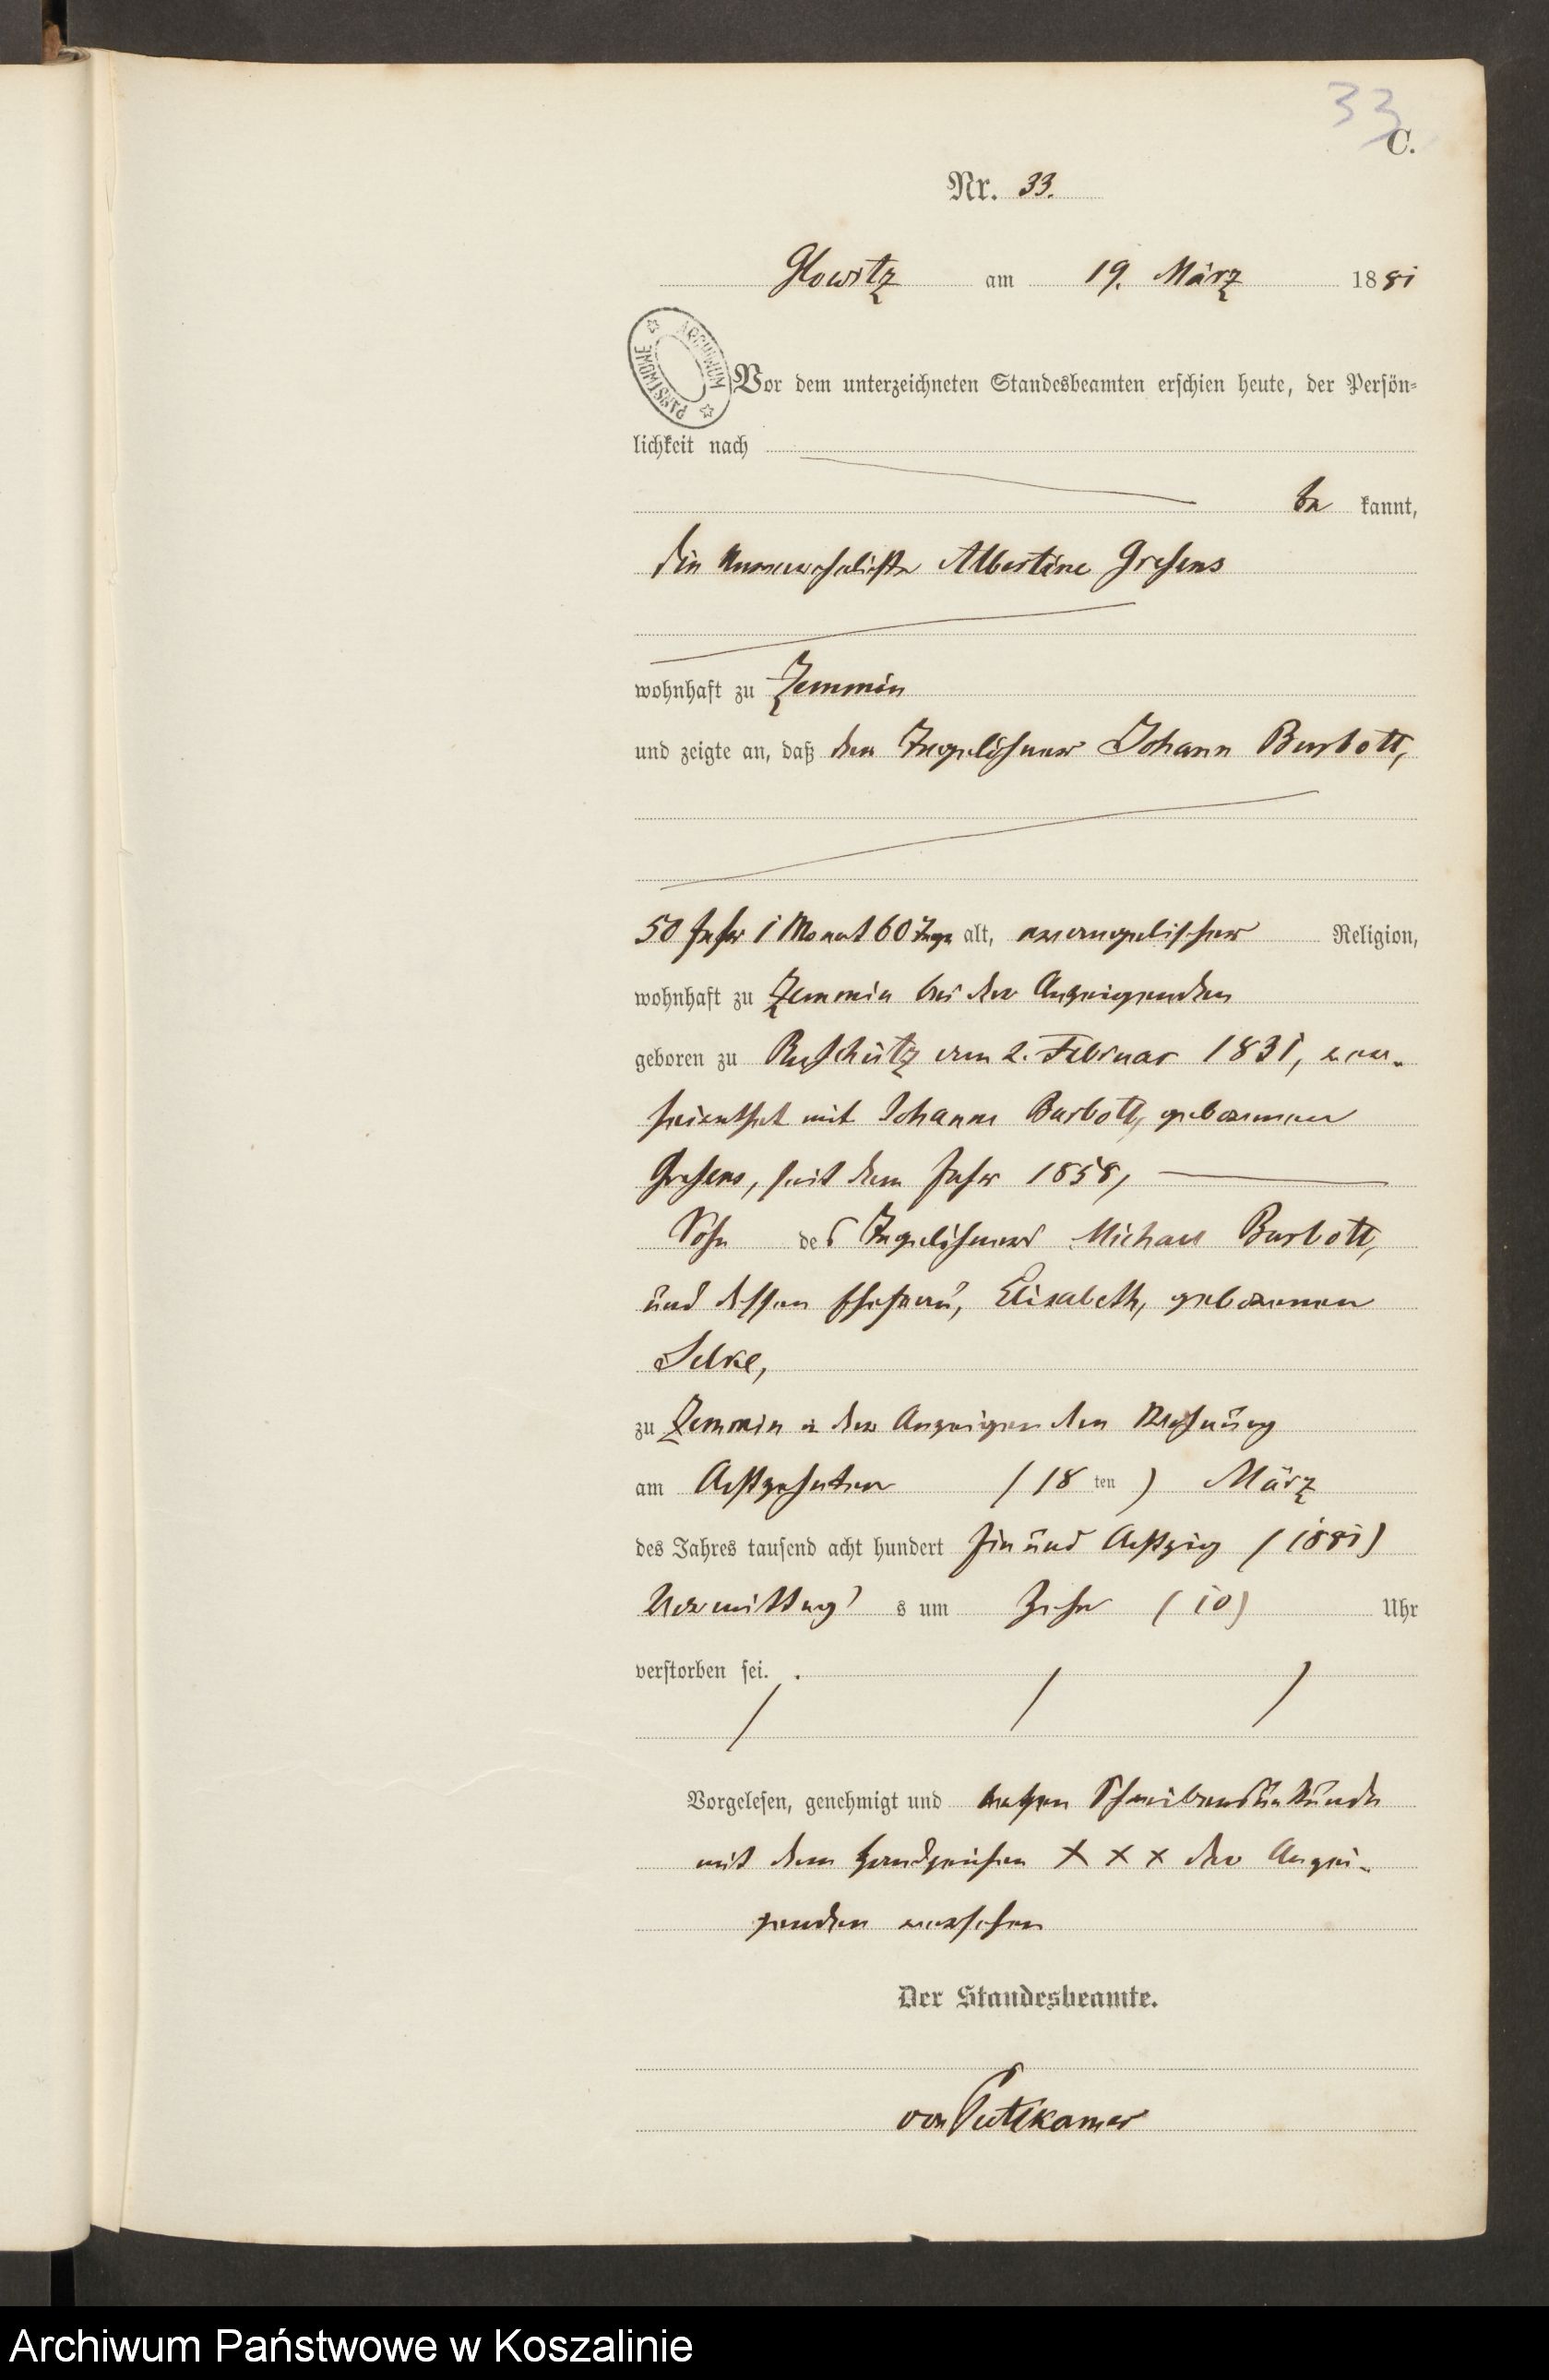 33
C.
Nr. 33.
Glowitz am 19. März 1881
ARCHIWUM PAŃSTWOWE
Vor dem unterzeichneten Standesbeamten erschien heute, der Persön-
lichkeit nach
be kannt,
die unverehelichte Albertine Grehens
wohnhaft zu Zemmin
und zeigte an, daß der Tagelöhner Johann Barbott,
50 Jahr 1 Monat Tage alt, evangelischer Religion,
wohnhaft zu Zemmin bei der Anzeigenden
geboren zu Ruschütz am 2. Februar 1831, ver-
heirathet mit Johanne Barbott, geborenen
Grehens, seit dem Jahr 1858,
Sohn des Tagelöhners Michael Barbott,
und dessen Ehefrau, Elisabeth, geborenen
Selke,
zu Zemmin in der Anzeigenden Wohnung
am Achtzehnten (18 ten) März
des Jahres tausend acht hundert Ein und Achtzig (1881)
Vormittag s um Zehn (10) Uhr
verstorben sei.
Vorgelesen, genehmigt und wegen Schreibensunkunde
mit dem Handzeichen X X X der Anzei-
genden versehen
Der Standesbeamte.
von Puttkamer
Archiwum Państwowe w Koszalinie